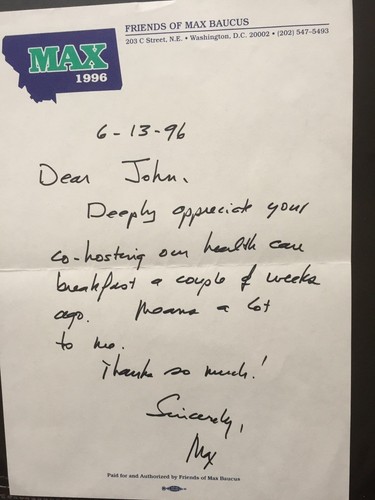 MAX
1996
FRIENDS OF MAX BAUCUS
203 C Street, N.E. • Washington, D.C. 20002 • (202) 547-5493
6-13-96
Dear John,
Deeply appreciate your
co-hosting our health care
breakfast a couple of weeks
ago. Means a lot
to me.
Thanks so much!
Sincerely,
Max
Paid for and Authorized by Friends of Max Baucus